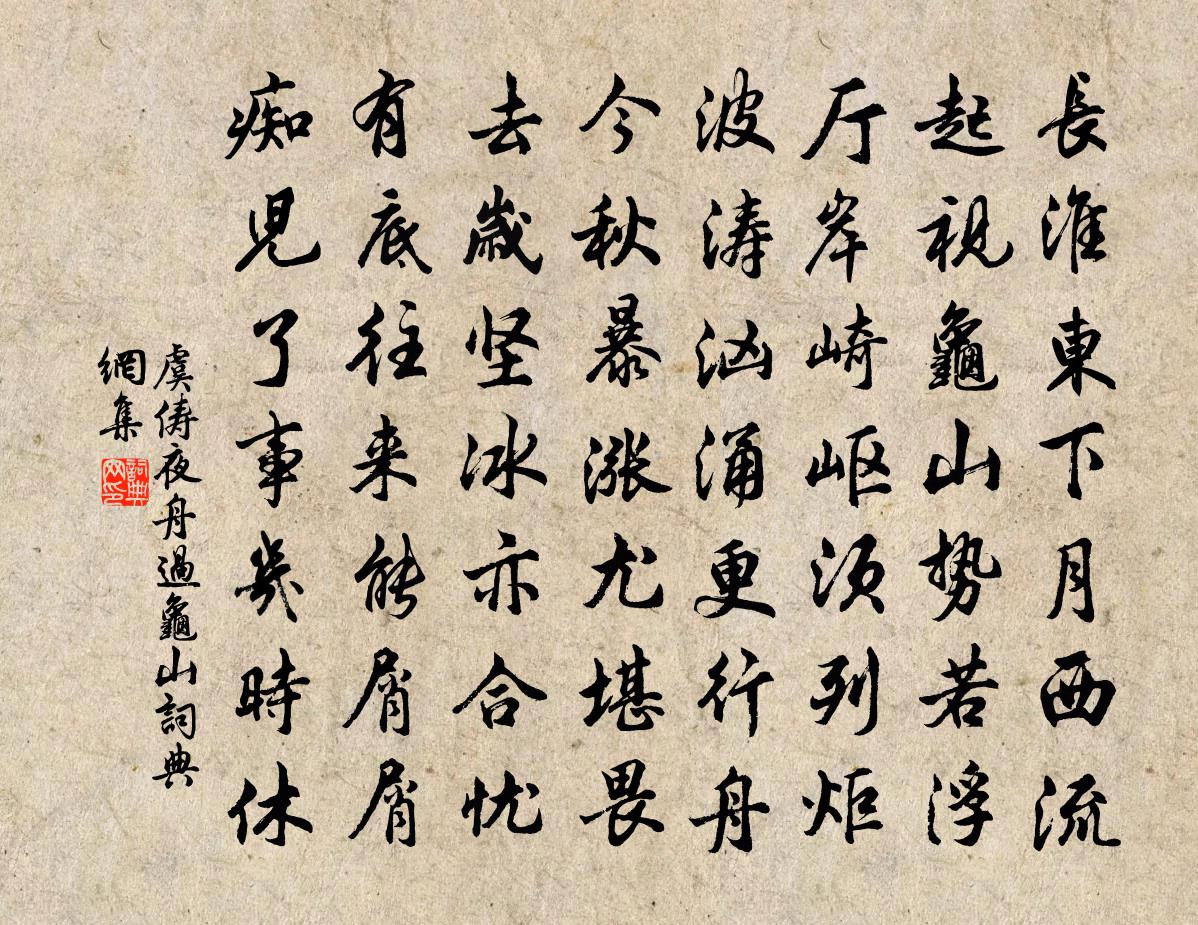 長淮東下月西流
起視龜山势若浮
厅岸崎岖须列炬
波涛汹涌更行舟
今秋暴漲尤堪畏
去歲坚冰亦合忧
有底往来能屑屑
痴児了事幾時休
虞俦夜舟過龜山詞典
網集
詞典
网印